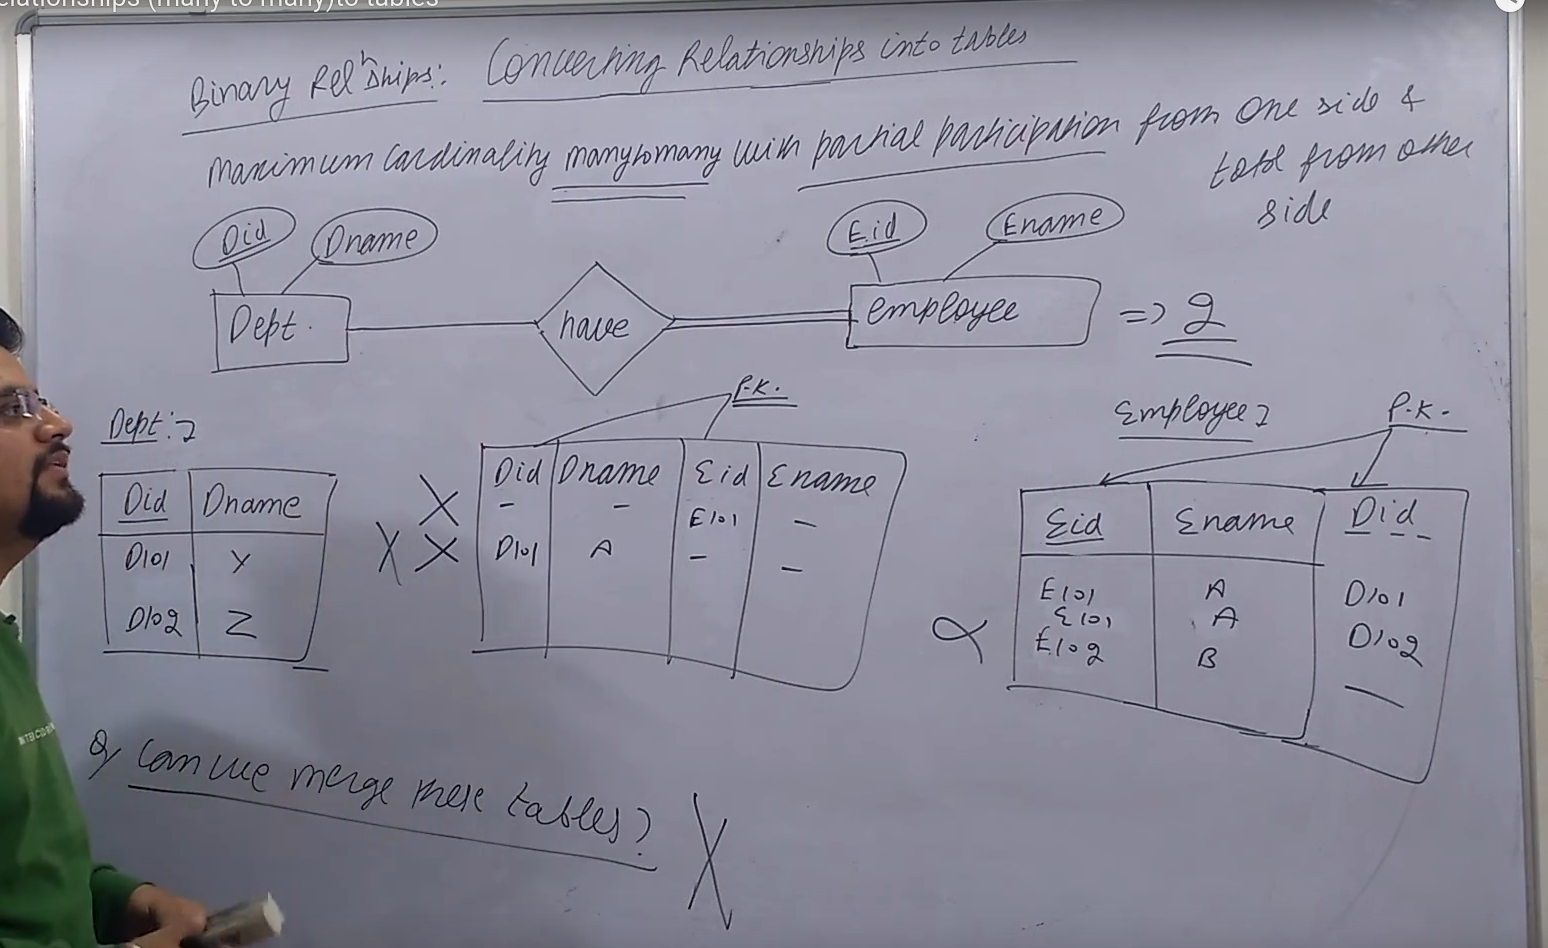 elationships (many to many)to tables
Binary Relnships: Converting Relationships into tables
maximum cardinality many to many with partial participation from one side &
total from other
side
Did Dname
Eid Ename
Dept. have employee => 2
P.K.
Dept:-
Employee:-
P.K.
Did Dname
D101 Y
D102 Z
X
X X
Did Dname Eid Ename
- - E101 -
D101 A - -
Eid Ename Did
E101 A D101
E101 A D102
E102 B —
Q/ Can we merge these tables? X